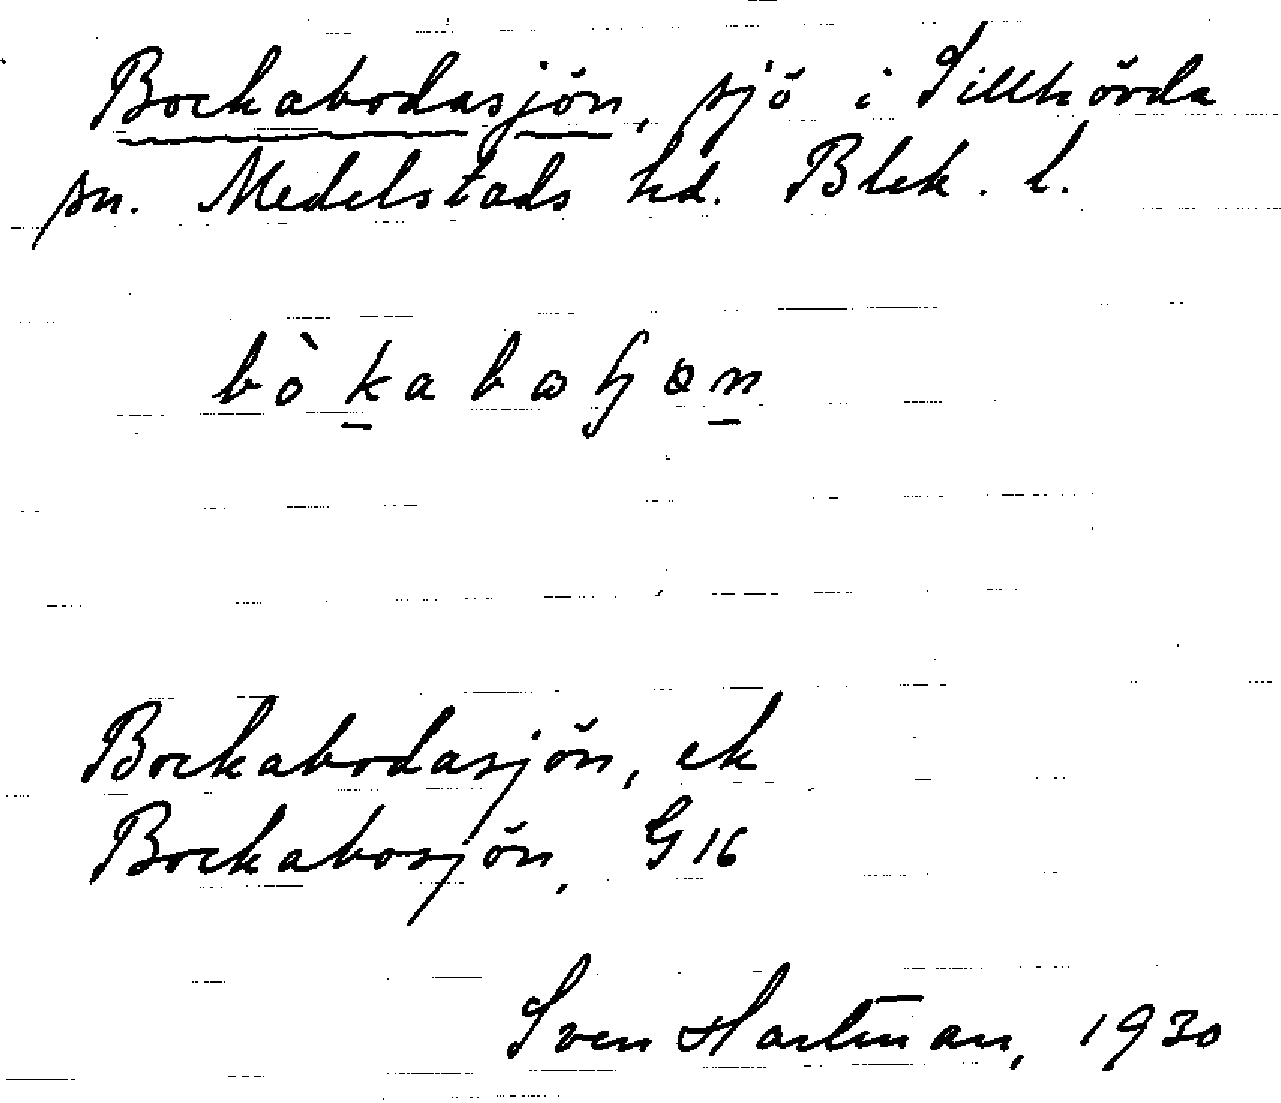 Bockabodasjön, sjö i Tillhövda
sn. Medelstads hd. Blek. l.
Bockabodasjön, ek
Bockabosjön, G16
Sven Hartman, 1930